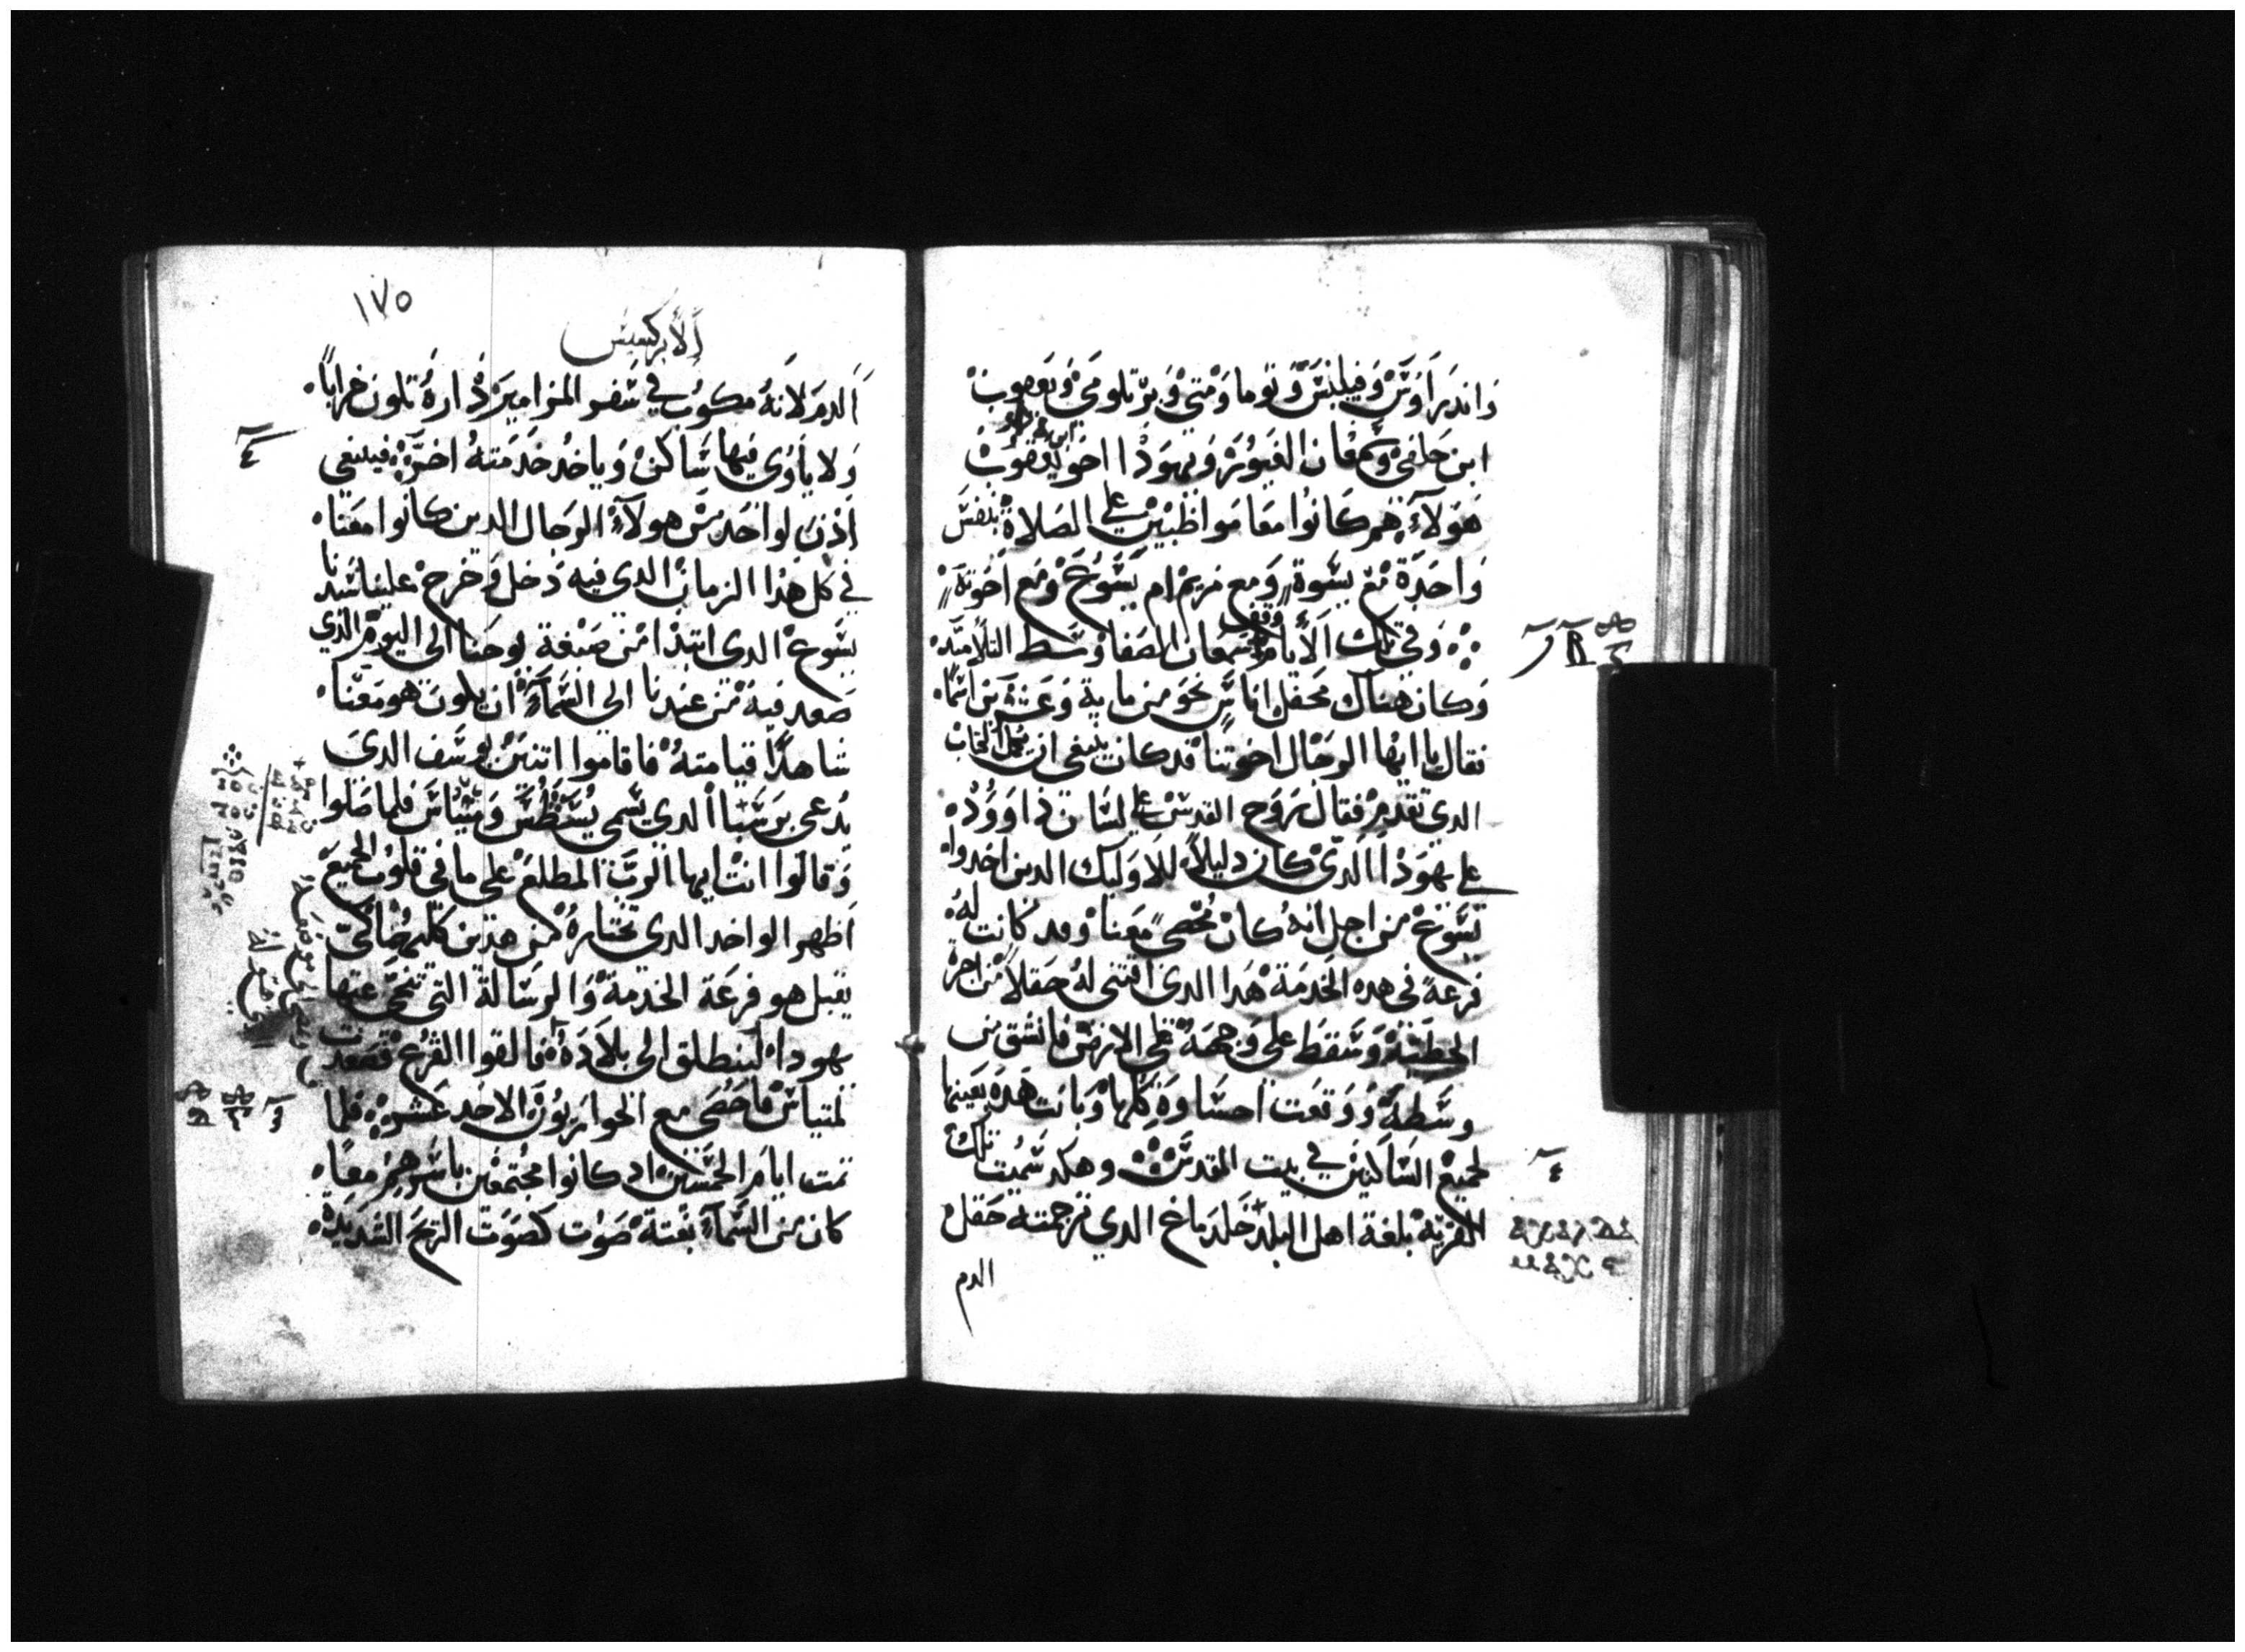 وَاندَرَاوَسْ وَفيلبسَ وَتوما وَمتي وَبرتلومي وَيعقوبْ
ابن حلفي وَسمعان الغيور وَيهودا اخو يعقوبْ
هَولآءِ هم كانوا معًا مواظبين علي الصَلاة بنفسَ
وَاحدَة مع نسْوة وَمع مريم ام يسَوعْ وَمع اخوته
وَفي تلك الاَيام وقف سمعان الصَفا وسَط التلاميد
وَكان هناك محفل اناسٍ نحو من ماية وَعشرين اسمًا
فقال يا ايها الرجال اخوتنا قد كان ينبغي ان يكمل الكتاب
الدي تقدم فقال روح القدسْ علي لسَان داوود
علي يهودا الدي كان دليلاً للاوليك الدين اخدوا
يسَوع من اجل انه كان محصي معنا وقد كانت له
قرعة في هده الخدمة هدا الدي اقتني له حقلاً من اجرة
الخطيَة وَسَقط علي وَجهه علي الارض فانشق من
وسَطه وَوقعت احشاوه كلها وَبانت هده بعينها
لجميع السَاكنين في بيت المقدسْ وهكد سَميت تلك
القرية بلغة اهل البلد حَلدَ ماخ الدي ترجمته حَقل
الدم
١٧٥
الاَبركسيس
الدم لانه مكتوبٌ في سَفر المزامير دارهُ تكون خرابًا
وَلا ياوي فيها سَاكن وَياخدُ خدمَته اخر فينبغي
ادن لواحد من هولآء الرجال الدين كانوا معنا
في كل هدا الزمان الدي فيه دَخل وَخرج علينا سَيدنا
يسَوع الدي ابتدا من صبغة يوحنا الي اليوم الدي
صَعد فيه من عندنا الي السَمآءِ ان يكون هو معنا
شاهدًا قيامتهُ فاقاموا اتنين يوسَف الدي
يُدعي برسَبا الدي يسَمي يُسَطُس وَمتياسَ فلما صَلوا
وَقالوا انت ايها الربَ المطلع علي ما في قلوب الجميع
اَظهر الواحد الدي تختاره من هدين كليهما لكي
يقبل هو قرعَة الخدمة وَالرسَالة التي تنحي عنها
يهودا لينطلق الي بلاده فالقوا القرع فصعدت
لمتياسْ فاحصَي مع الحواريون الاحد عَشر فلما
تمت ايام الخمسَين اد كانوا مجتمعين باسَرهم معًا
كان من السَمآءِ بغتة صَوت كصَوت الريح الشديدة